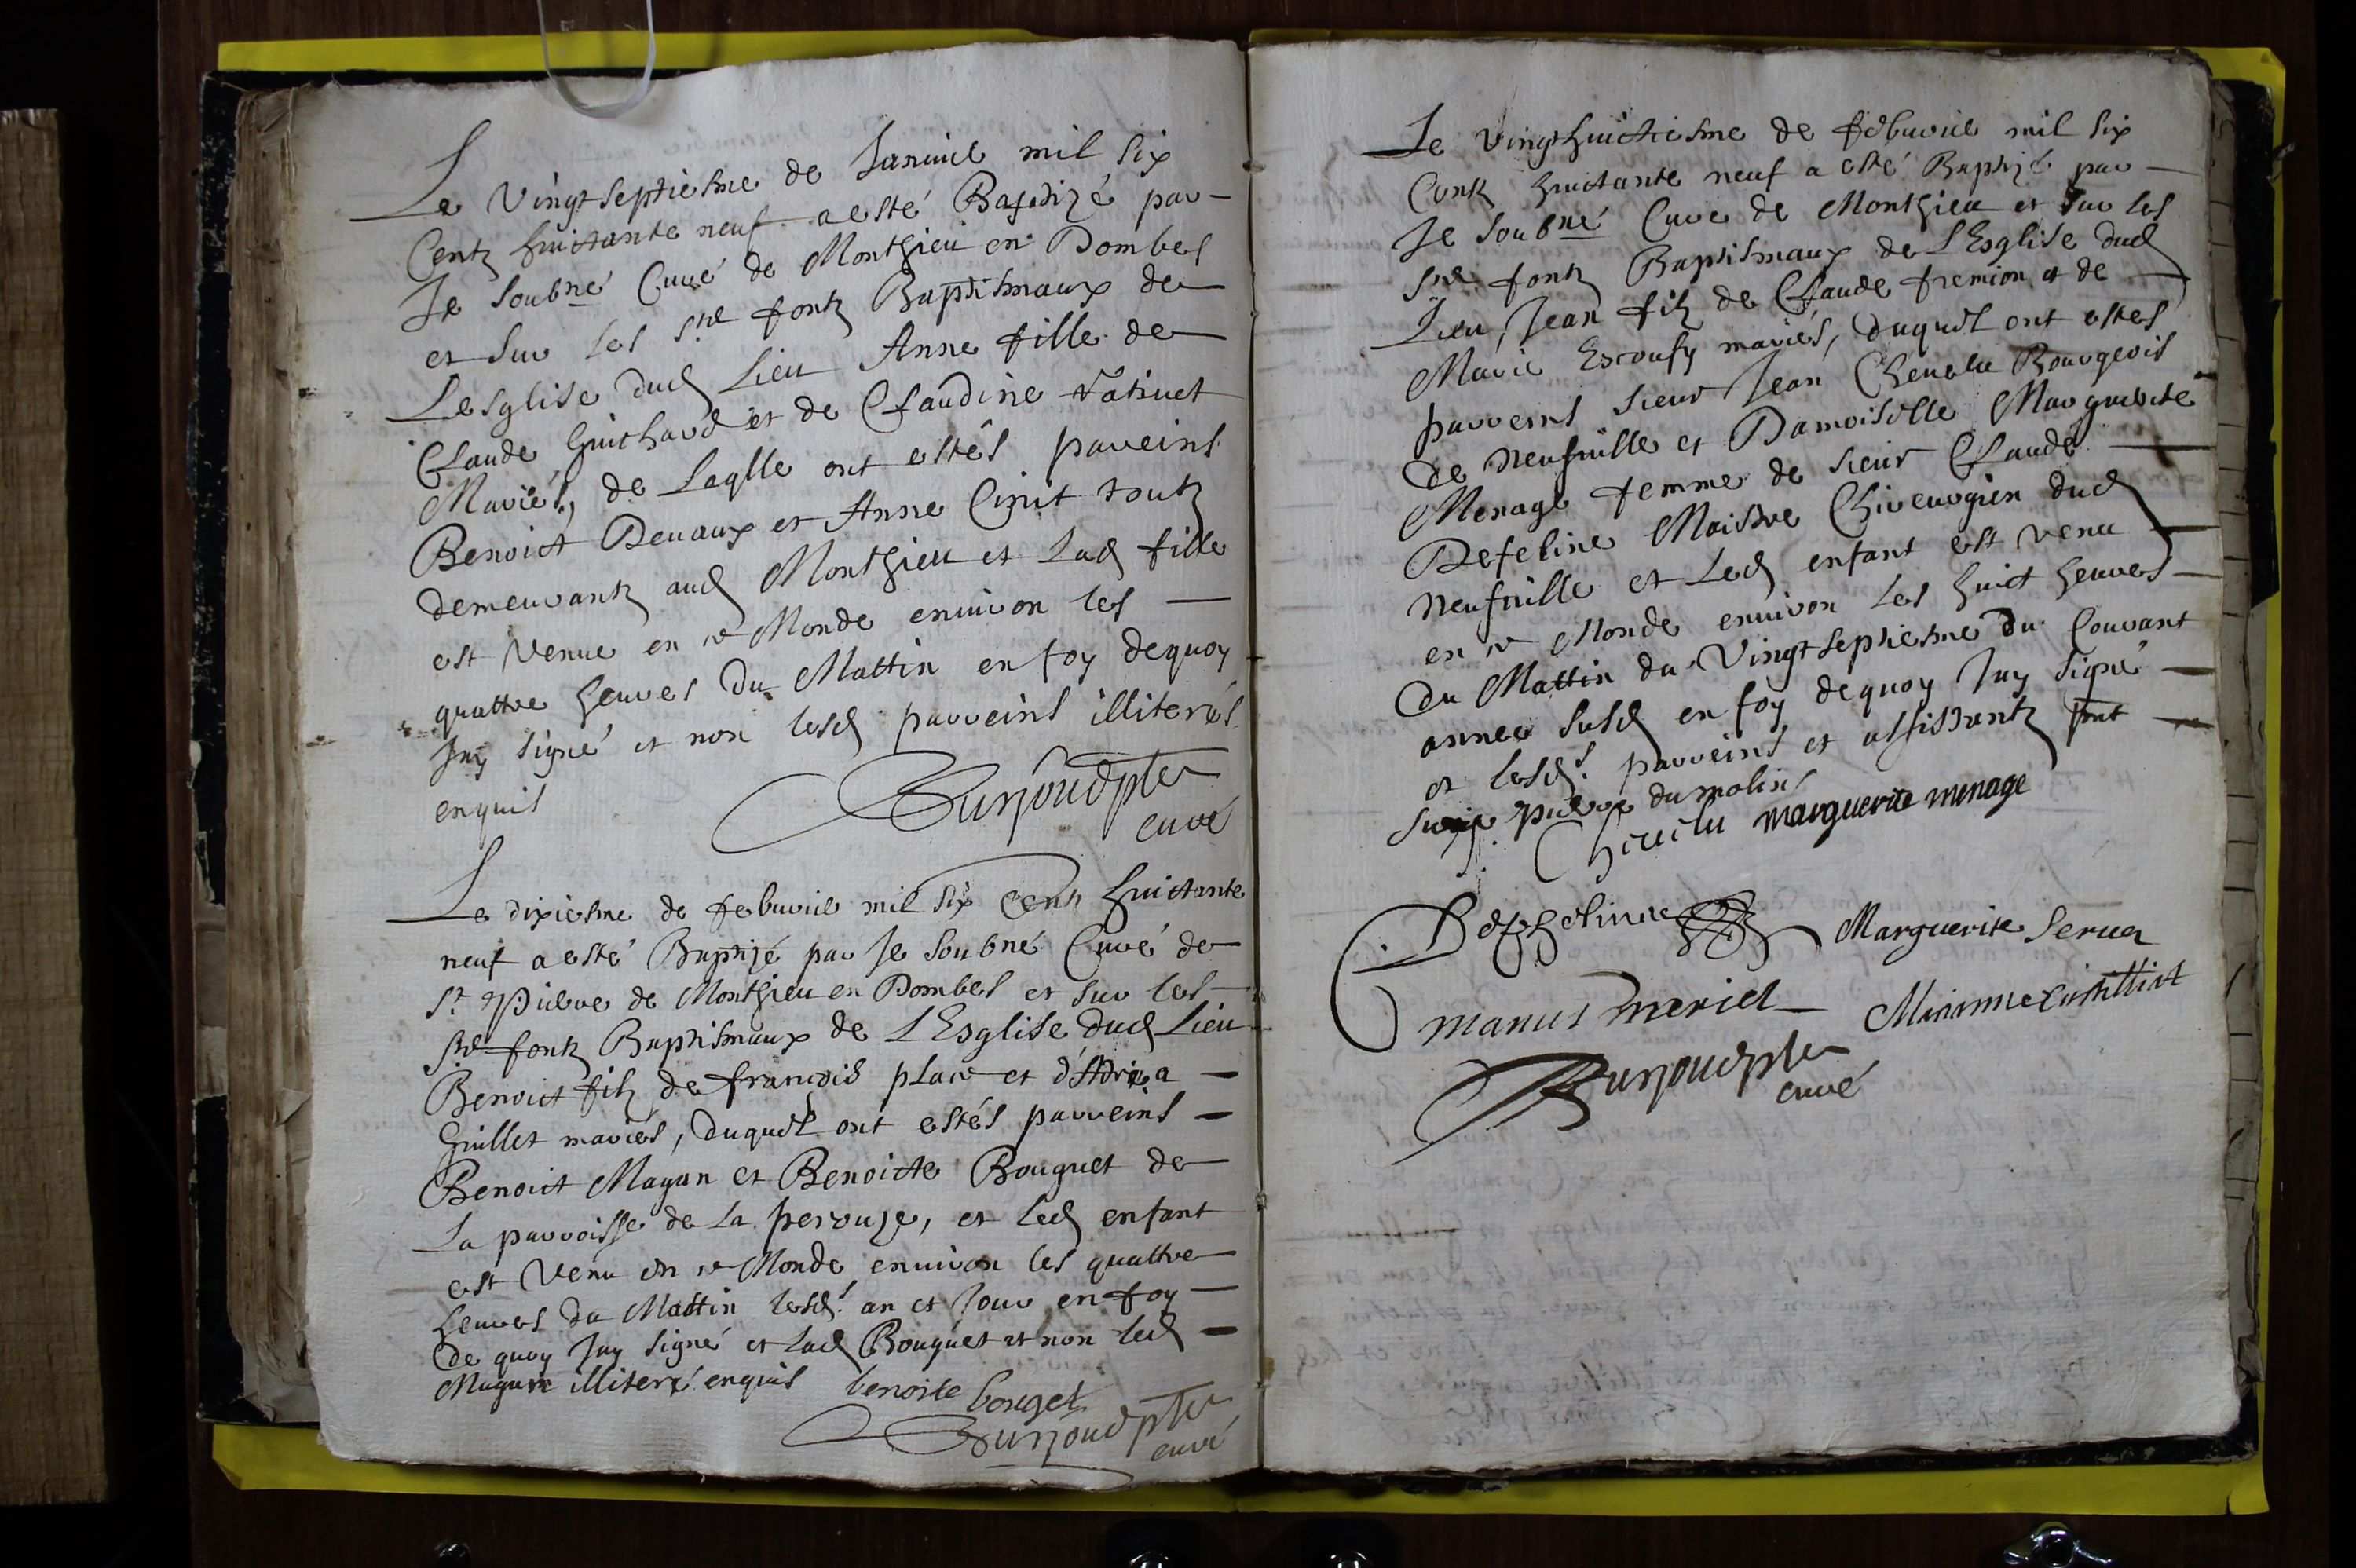 Le vingt septiesme de Januie mil six
Centz huictante neuf a esté Baptizé par
Je soubné Curé de Monthieu en Dombes
et sur les Stz fontz Baptismaux de
Lesglise dud Lieu Anne fille de
Claude Guichard et de Claudine Vativet
Mariés, de Laqlle ont estés parreins
Benoict Devaux et Anne Cirit toutz
demeurantz aud Monthieu et Lad fille
est venue en ce Monde enuiron les
quattre heures du Mattin en foy dequoy
Jay signé et non lesd parreins illiterés
enquis
Burjoud ptre
curé
Le dixiesme de feburier mil six Centz huictante
neuf a esté Baptizé par Je soubné Curé de
St Pierre de Monthieu en Dombes et sur les
Stz fontz Baptismaux de LEsglise dud Lieu
Benoict filz de françois place et d'Adriana
Guillet mariés, duquel ont estés parreins
Benoict Mayan et Benoicte Bouguet de
La parroisse de La perouze, et led enfant
est venu en ce Monde enuiron les quattre
heures du Mattin lesds an et Jour en foy
de quoy Jay signé et lad Bouguet et non led
illiteré enquis benoite bouget
Burjoud ptre
curé
Le vingt huictiesme de feburier mil six
Centz huictante neuf a esté Baptizé par
Je soubné Curé de Monthieu et sur les
Stz fontz Baptismaux de LEsglise dud
Lieu, Jean filz de Claude fremion et de
Marie Escoufy mariés, duquel ont estes
parreins sieur Jean Cheuelu Bourgeois
de Neufuille et Damoiselle Marguerite
Menage femme de sieur Claude
Defeline Maistre Chireurgien dud
Neufuille et Led enfant est venu
en ce Monde enuiron les huict heures
du Mattin du Vingt septiesme du Courant
annee susd en foy dequoy Jay signé
et lesds parreins et assistantz sont
pierre dumolin
Cheuelu marguerite menage
Defeline Marguerite
manus meriel
Burjoud ptre
curé